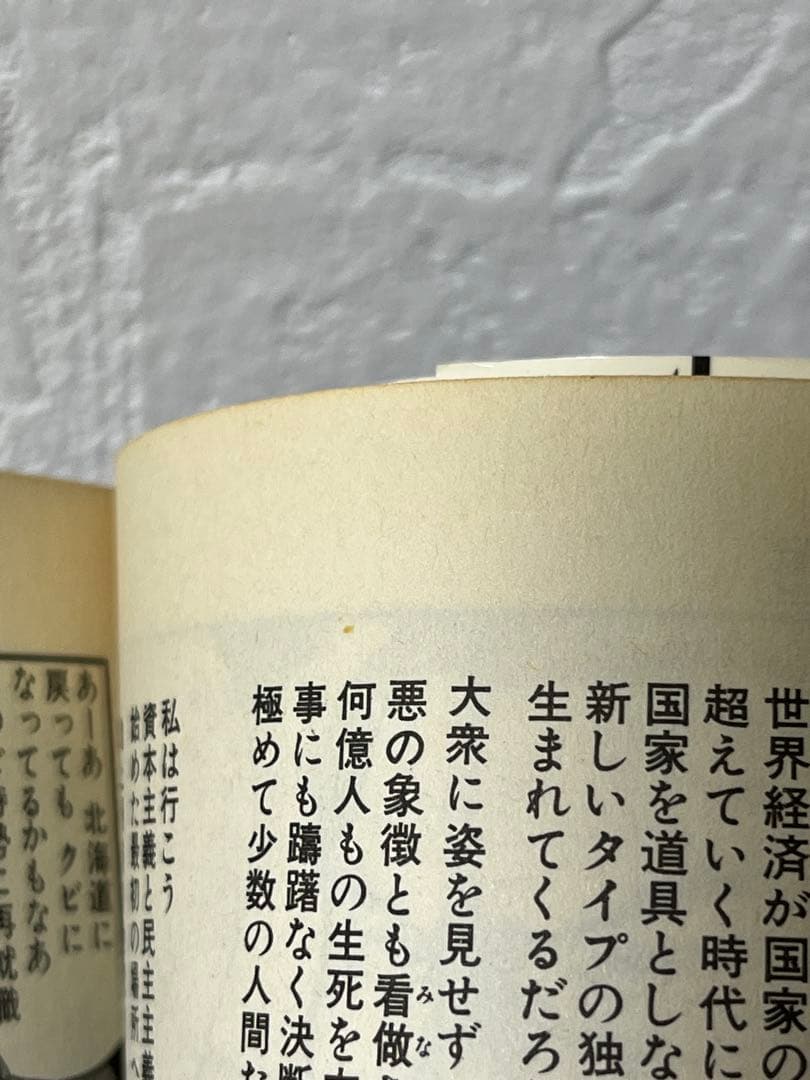 世界経済が国家の
超えていく時代に
国家を道具としな
新しいタイプの独
生まれてくるだろ
大衆に姿を見せず
悪の象徴とも看做
みな
何億人もの生死を
事にも躊躇なく決断
極めて少数の人間な
私は行こう
資本主義と民主主義
始めた最初の場所へ
あーあ 北海道に
戻っても クビに
なってるかもなあ
再就職